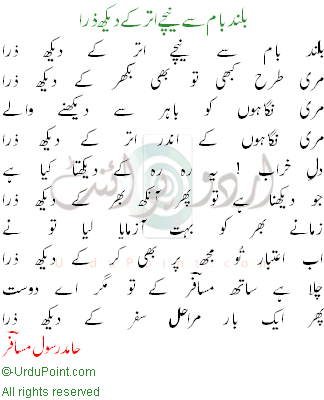 بلند بام سے نیچے اتر کے دیکھ ذرا
بلند بام سے نیچے اتر کے دیکھ ذرا
مری طرح کبھی تو بھی بکھر کے دیکھ ذرا
مری نگاہوں کو باہر سے دیکھنے والے
مری نگاہوں کے اندر اتر کے دیکھ ذرا
دل خراب ! یہ رہ رہ کے دیکھتا کیا ہے
جو دیکھنا ہے تو پھر آنکھ بھر کے دیکھ ذرا
زمانے بھر کو بہت آزما لیا تو نے
اب اعتبار تُو مجھ پر بھی کر کے دیکھ ذرا
چلا ہے ساتھ مسافر کے تو مگر اے دوست
پھر ایک بار مراحل سفر کے دیکھ ذرا
حامد رسول مسافر
©-UrduPoint.com
All rights reserved
اردو پوائنٹ
UrduPoint.com